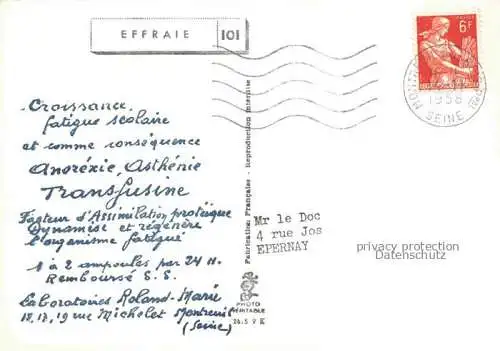 EFFRAIE 101
6F
1958
SEINE
Croissance,
fatigue scolaire
et comme conséquence
Anoréxie, Asthénie
Transfusine
Facteur d'Assimilation protéique
Dynamise et régénère
l'organisme fatigué
1 à 2 ampoules par 24 H.
Remboursé S.S.
Laboratoires Roland-Marie
18.17.19 rue Michelet Montreuil
(Seine)
Fabrication Française - Reproduction interdite
PHOTO
VÉRITABLE
Mr le Doc
4 rue Jos
EPERNAY
privacy protection
Datenschutz